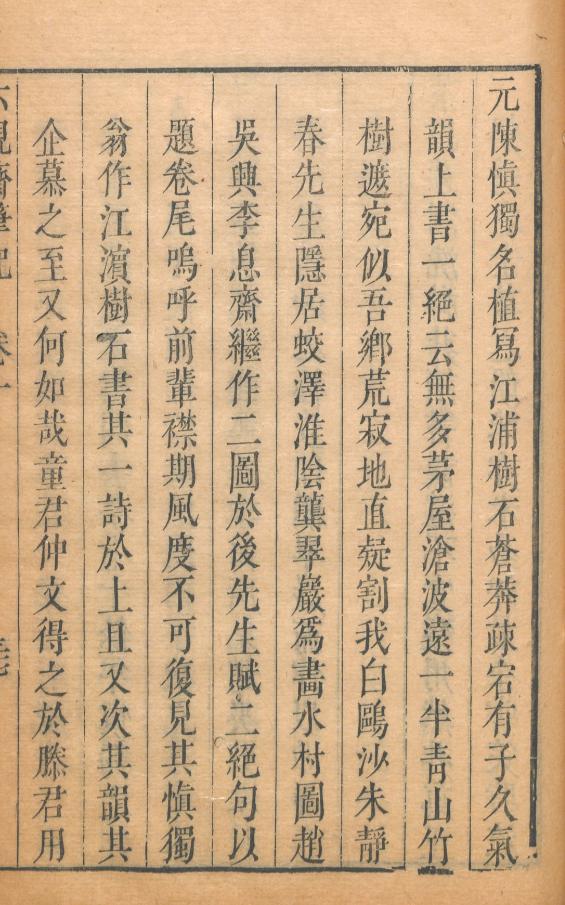 元陳慎獨名植寫江浦樹石蒼莽疎宕有子久氣
韻上書一絕云無多茅屋滄波遠一半青山竹
樹遮宛似吾鄉荒寂地直疑割我白鷗沙朱靜
春先生隱居蛟澤淮陰龔翠巖爲畵水村圖趙
吳興李息齋繼作二圖於後先生賦二絕句以
題卷尾嗚呼前輩襟期風度不可復見其慎獨
翁作江濵樹石書其一詩於上且又次其韻其
企慕之至又何如哉童君仲文得之於滕君用
六硯齋筆記 卷一